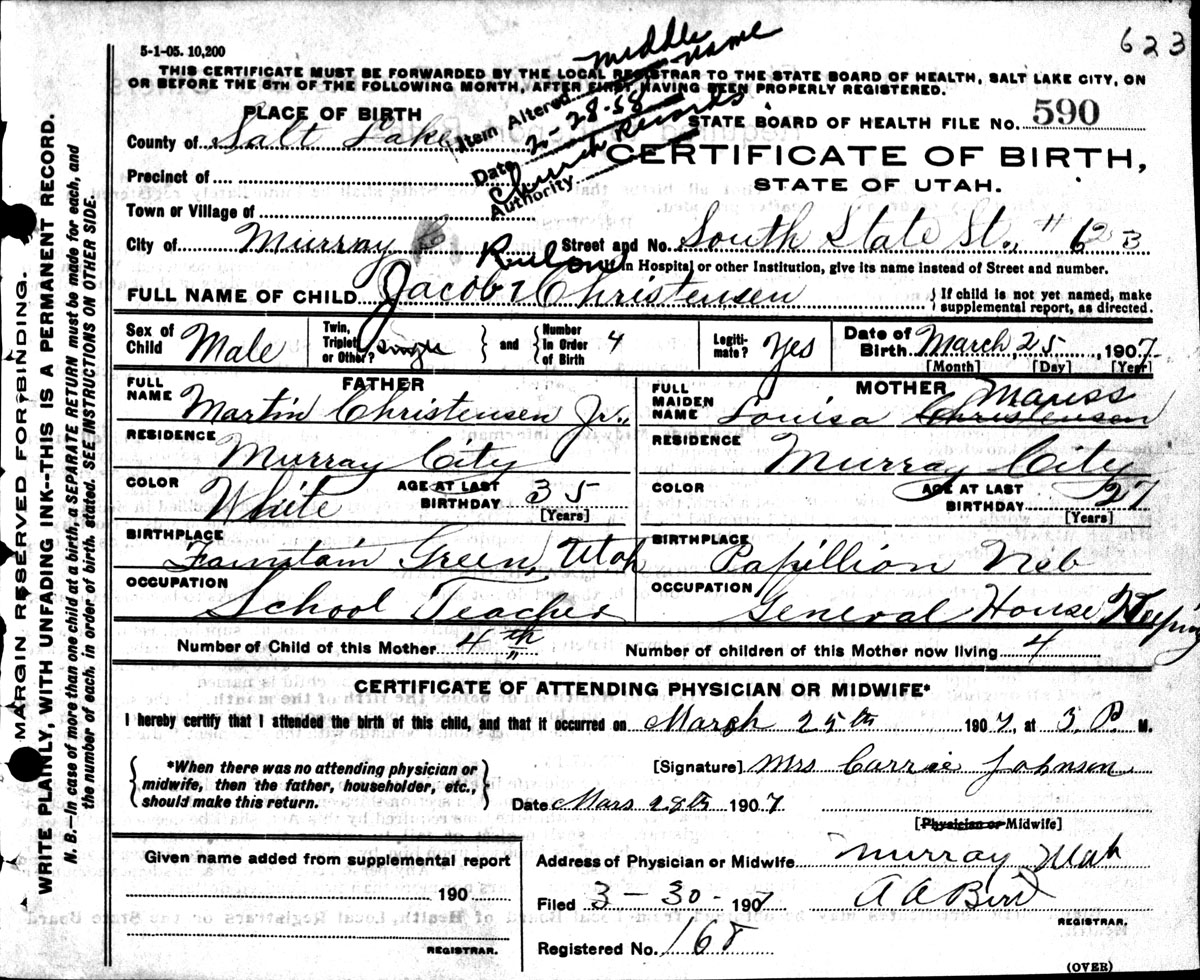 623
5-1-05. 10,200
THIS CERTIFICATE MUST BE FORWARDED BY THE LOCAL REGISTRAR TO THE STATE BOARD OF HEALTH, SALT LAKE CITY, ON
OR BEFORE THE 5TH OF THE FOLLOWING MONTH, AFTER FIRST HAVING BEEN PROPERLY REGISTERED.
Item Altered middle name
Date 2-28-58
Authority Church Records
PLACE OF BIRTH
STATE BOARD OF HEALTH FILE NO. 590
County of Salt Lake
CERTIFICATE OF BIRTH,
Precinct of
STATE OF UTAH.
Town or Village of
City of Murray Street and No. South State St., # 623
If in Hospital or other Institution, give its name instead of Street and number.
Rulon
FULL NAME OF CHILD Jacob Christensen { If child is not yet named, make supplemental report, as directed.
Sex of Child Male Twin, Triplet or Other? Single } and { Number in Order of Birth 4 Legitimate? Yes Date of Birth March, 25, 1907.
[Month] [Day] [Year]
FATHER
FULL NAME Martin Christensen Jr.,
RESIDENCE Murray City
COLOR White AGE AT LAST BIRTHDAY 35
[Years]
BIRTHPLACE Fountain Green, Utah
OCCUPATION School Teacher
MOTHER
FULL MAIDEN NAME Louisa Christensen
RESIDENCE Murray City
COLOR AGE AT LAST BIRTHDAY 27
[Years]
BIRTHPLACE Papillion Neb
OCCUPATION General House Keeping
Number of Child of this Mother 4th Number of children of this Mother now living 4
CERTIFICATE OF ATTENDING PHYSICIAN OR MIDWIFE*
I hereby certify that I attended the birth of this child, and that it occurred on March 25th 1907, at 3 P. M.
{ *When there was no attending physician or midwife, then the father, householder, etc., should make this return. }
[Signature] Mrs Carrie Johnson
Date Mars 29th 1907
[Physician or Midwife]
Given name added from supplemental report
190
REGISTRAR.
Address of Physician or Midwife Murray Utah
Filed 3-30-1907 A A Bird
REGISTRAR.
Registered No. 168
(OVER)
MARGIN RESERVED FOR BINDING.
WRITE PLAINLY, WITH UNFADING INK--THIS IS A PERMANENT RECORD.
N. B.--In case of more than one child at a birth, a SEPARATE RETURN must be made for each, and
the number of each, in order of birth, stated. SEE INSTRUCTIONS ON OTHER SIDE.